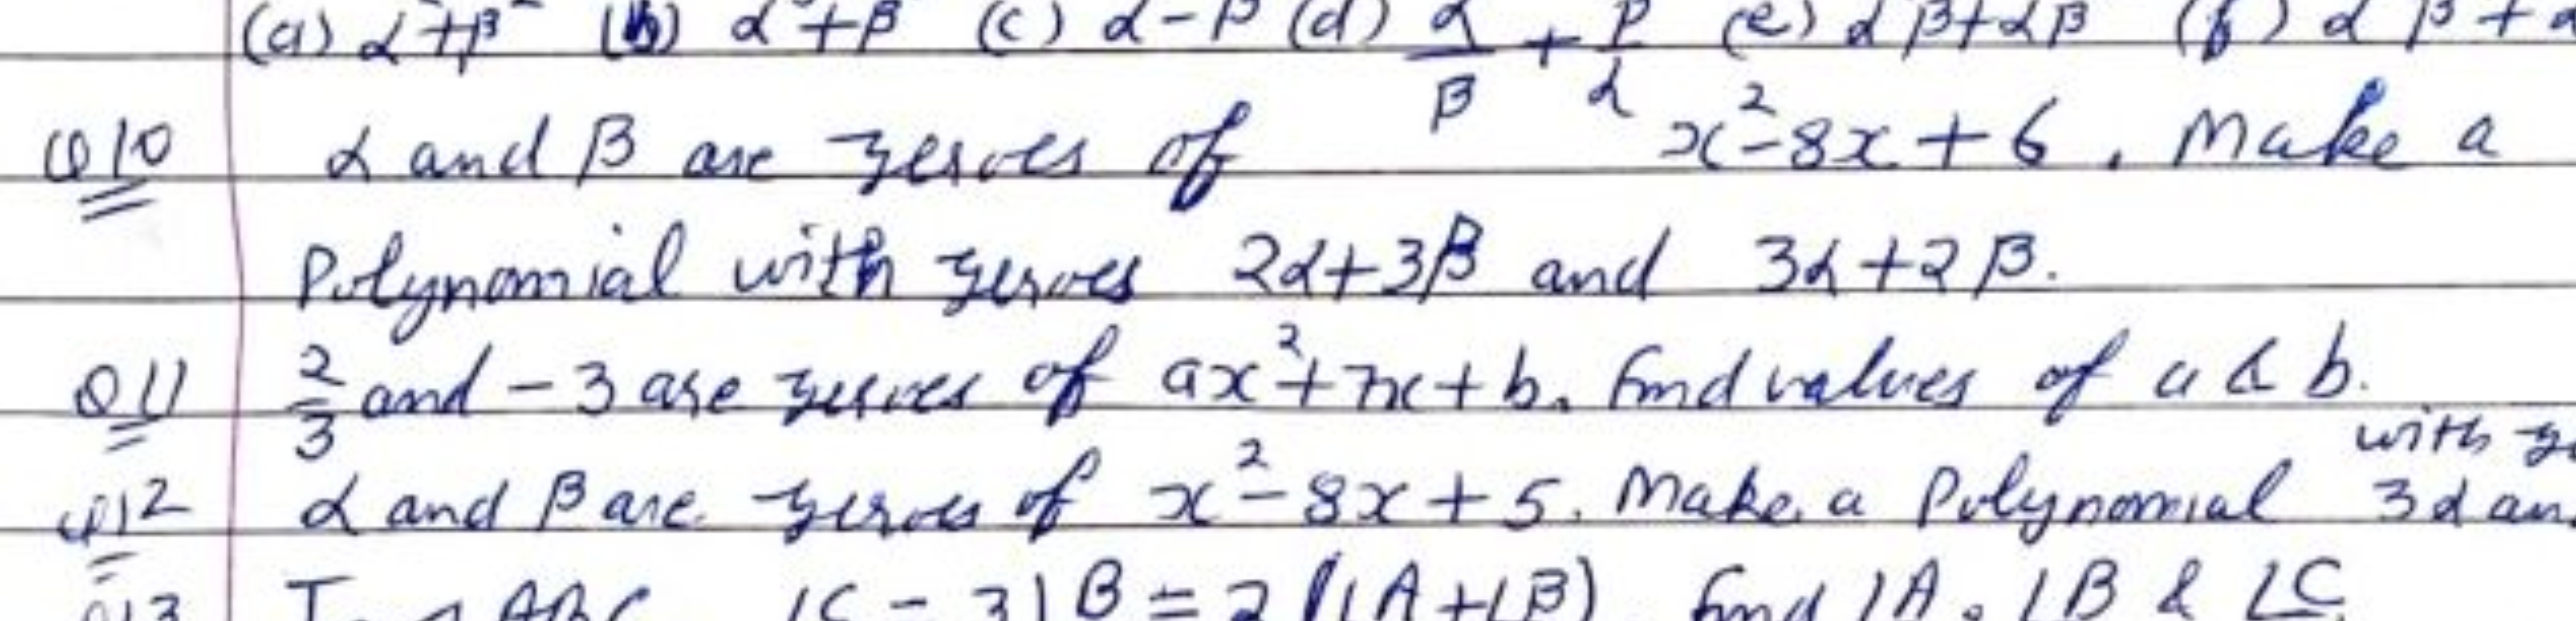 (a) α²+β² (b) α³+β³ (c) α-β (d) α/β + β/α (e) αβ+αβ (f) α β +
Q10 α and β are zeroes of x²-8x+6. Make a
Polynomial with zeroes 2α+3β and 3α+2β.
Q11 2/3 and -3 are zeroes of ax²+7x+b. Find values of a & b.
Q12 α and β are zeroes of x²-8x+5. Make a Polynomial with 3α
ABC ∠C = 3∠B = 2(∠A+∠B) Find ∠A, ∠B & ∠C